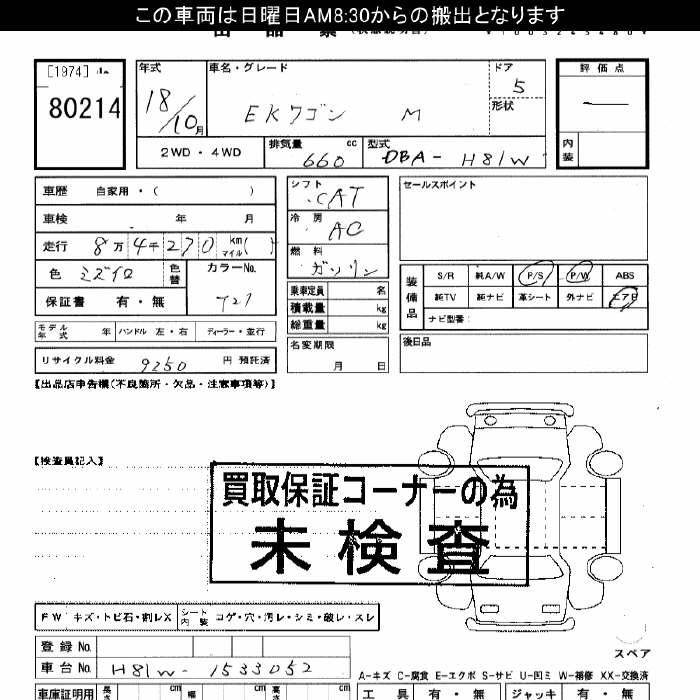 この車両は日曜日AM8:30からの搬出となります
[1974]
80214
年式
18/10月
車名・グレード
EKワゴン M
ドア
5
形状
評価点
内装
2WD・4WD
排気量 cc
660
型式
DBA-H81W
車歴 自家用・( )
車検 年 月
走行 8万4千270 km マイル( )
色 ミズイロ 色替
カラーNo.
T27
保証書 有・無
シフト
CAT
冷房
AC
燃料
ガソリン
乗車定員 名
積載量 kg
総重量 kg
セールスポイント
装備品
S/R 純A/W P/S P/W ABS
純TV 純ナビ 革シート 外ナビ エアB
ナビ型番:
モデル年式 年 ハンドル 左・右 ディーラー・並行
名変期限
月 日
後日品
リサイクル料金 9250 円 預託済
【出品店申告欄(不良箇所・欠品・注意事項等)】
【検査員記入】
買取保証コーナーの為
未検査
FW キズ・トビ石・割レX
シート内装 コゲ・穴・汚レ・シミ・破レ・スレ
登録No.
車台No. H81W-1533052
スペア
A-キズ C-腐食 E-エクボ S-サビ U-凹ミ W-補修 XX-交換済
車庫証明用 長さ cm 幅 cm 高さ cm
工具 有・無 ジャッキ 有・無